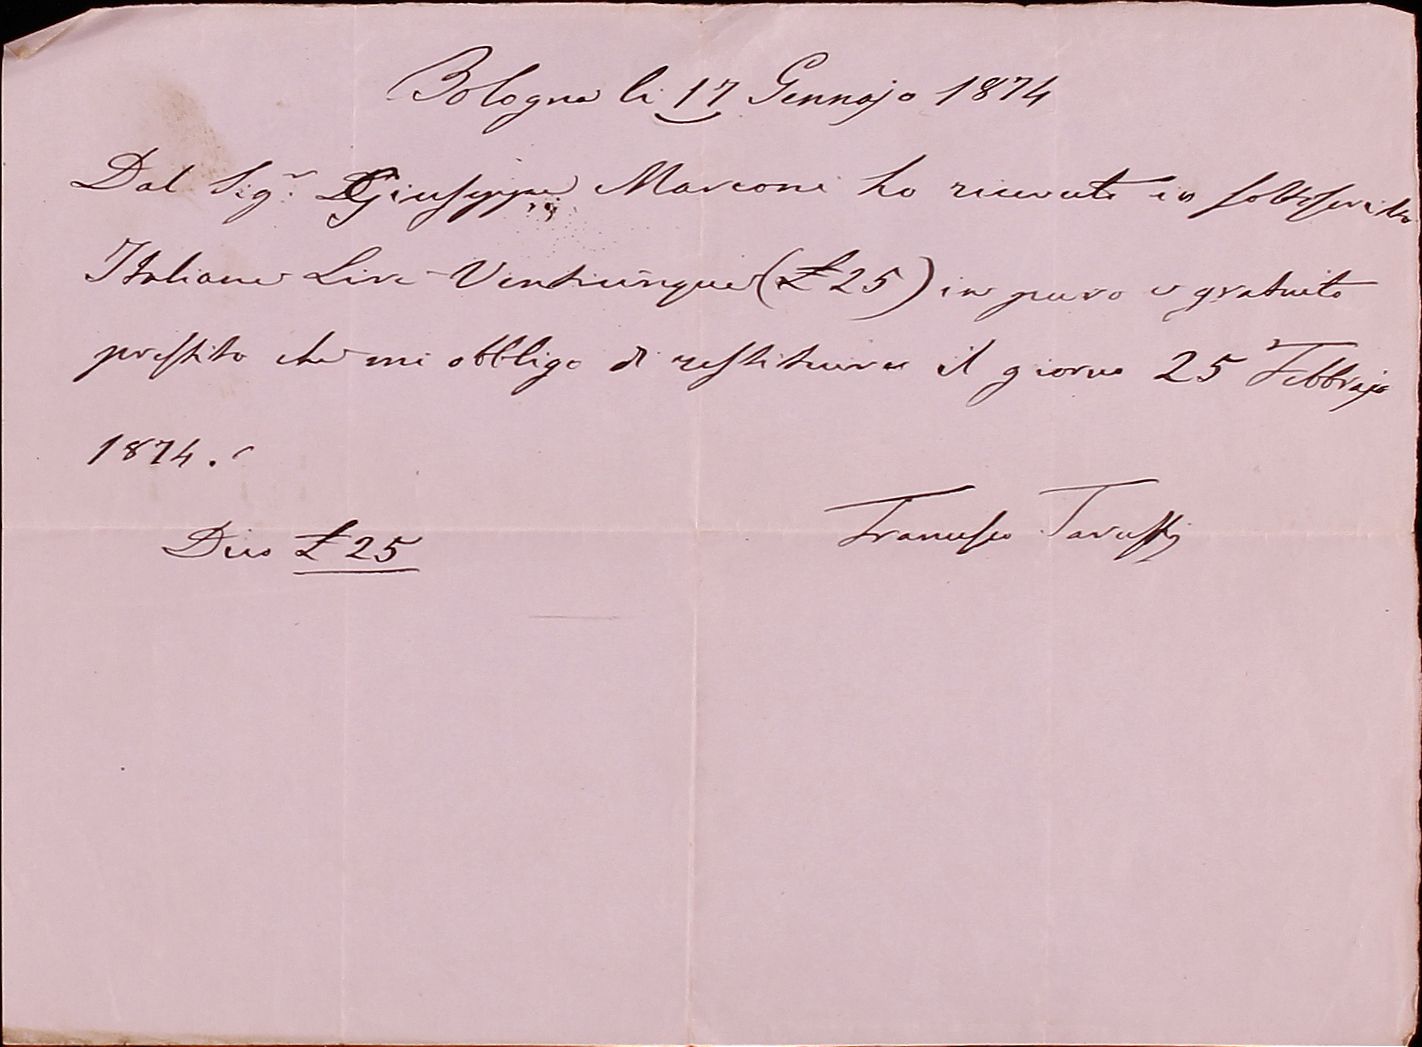 Bologna li 17 Gennajo 1874
Dal Sigr. Giuseppe Marconi ho ricevuto io sottoscritto
Italiane Lire Venticinque (£ 25) in puro e gratuito
prestito che mi obbligo di restituire il giorno 25 Febbrajo
1874.
Dico £ 25
Francesco Taruffi